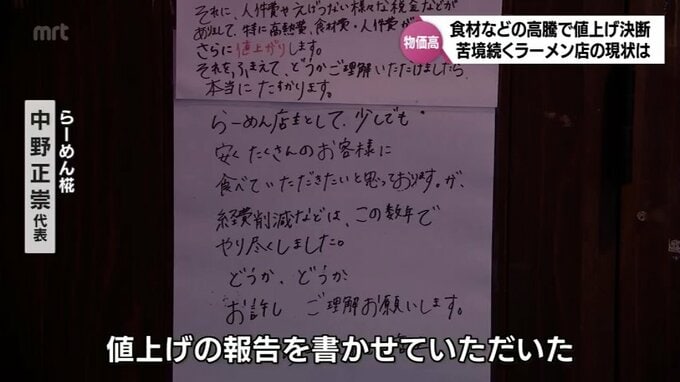 mrt
物価高
食材などの高騰で値上げ決断
苦境続くラーメン店の現状は
らーめん椛
中野正崇 代表
それに、人件費やえげつない様々な税金などが
特に高熱費、食材費・人件費が
さらに値上がりします。
それをふまえて、どうかご理解いただけましたら
本当にたすかります。
らーめん店主として、少しでも
安くたくさんのお客様に
食べていただきたいと思っております。が、
経費削減などは、この数年で
やり尽くしました。
どうか、どうか
お許し ご理解お願いします。
値上げの報告を書かせていただいた